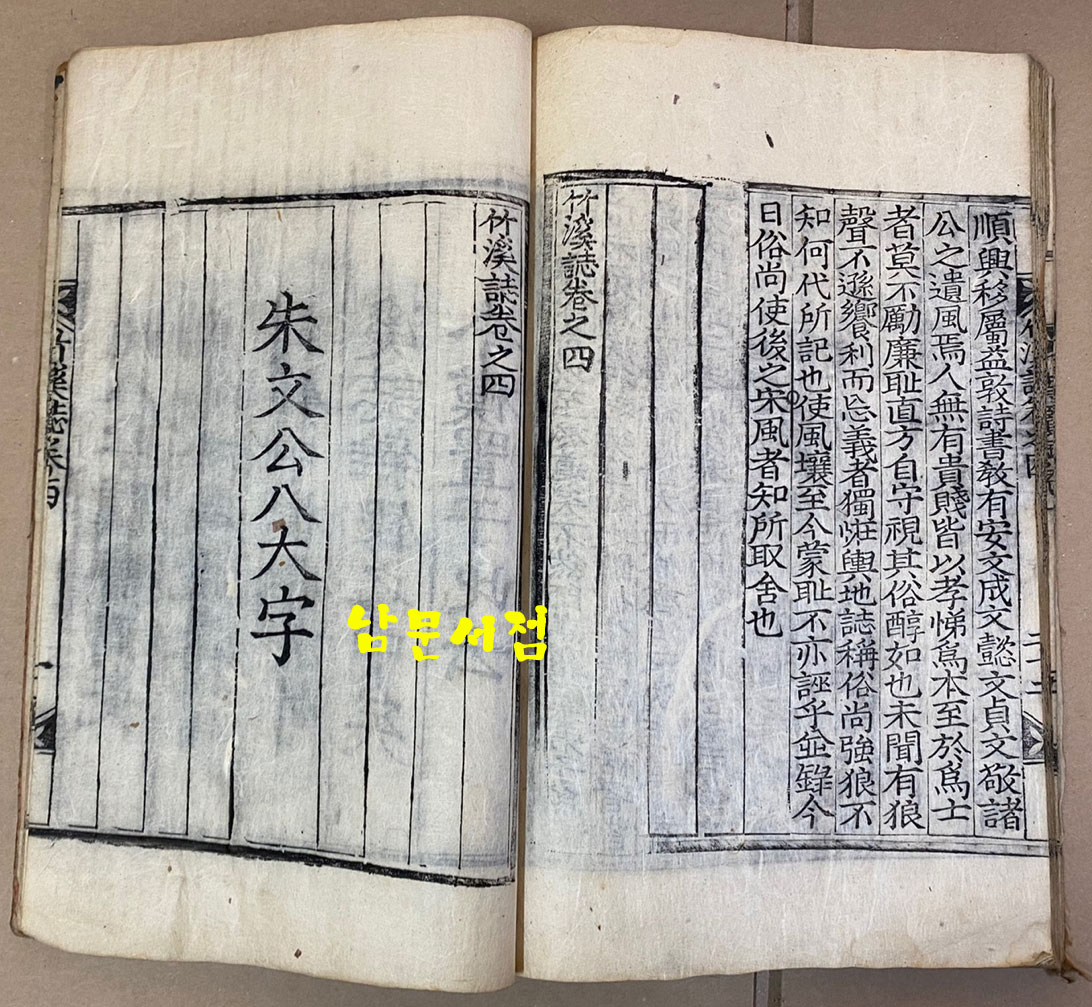 順興移屬益敦詩書敎有安文成文懿文貞文敬諸
公之遺風焉人無有貴賤皆以孝悌爲本至於爲士
者莫不勵廉耻直方自守視其俗醇如也未聞有狼
聲不遜饗利而忘義者獨恠輿地誌稱俗尙強狼不
知何代所記也使風壤至今蒙耻不亦誣乎並錄今
日俗尙使後之采風者知所取舍也
竹溪誌卷之四
竹溪誌卷之四
朱文公八大字
竹溪誌卷四
남문서점